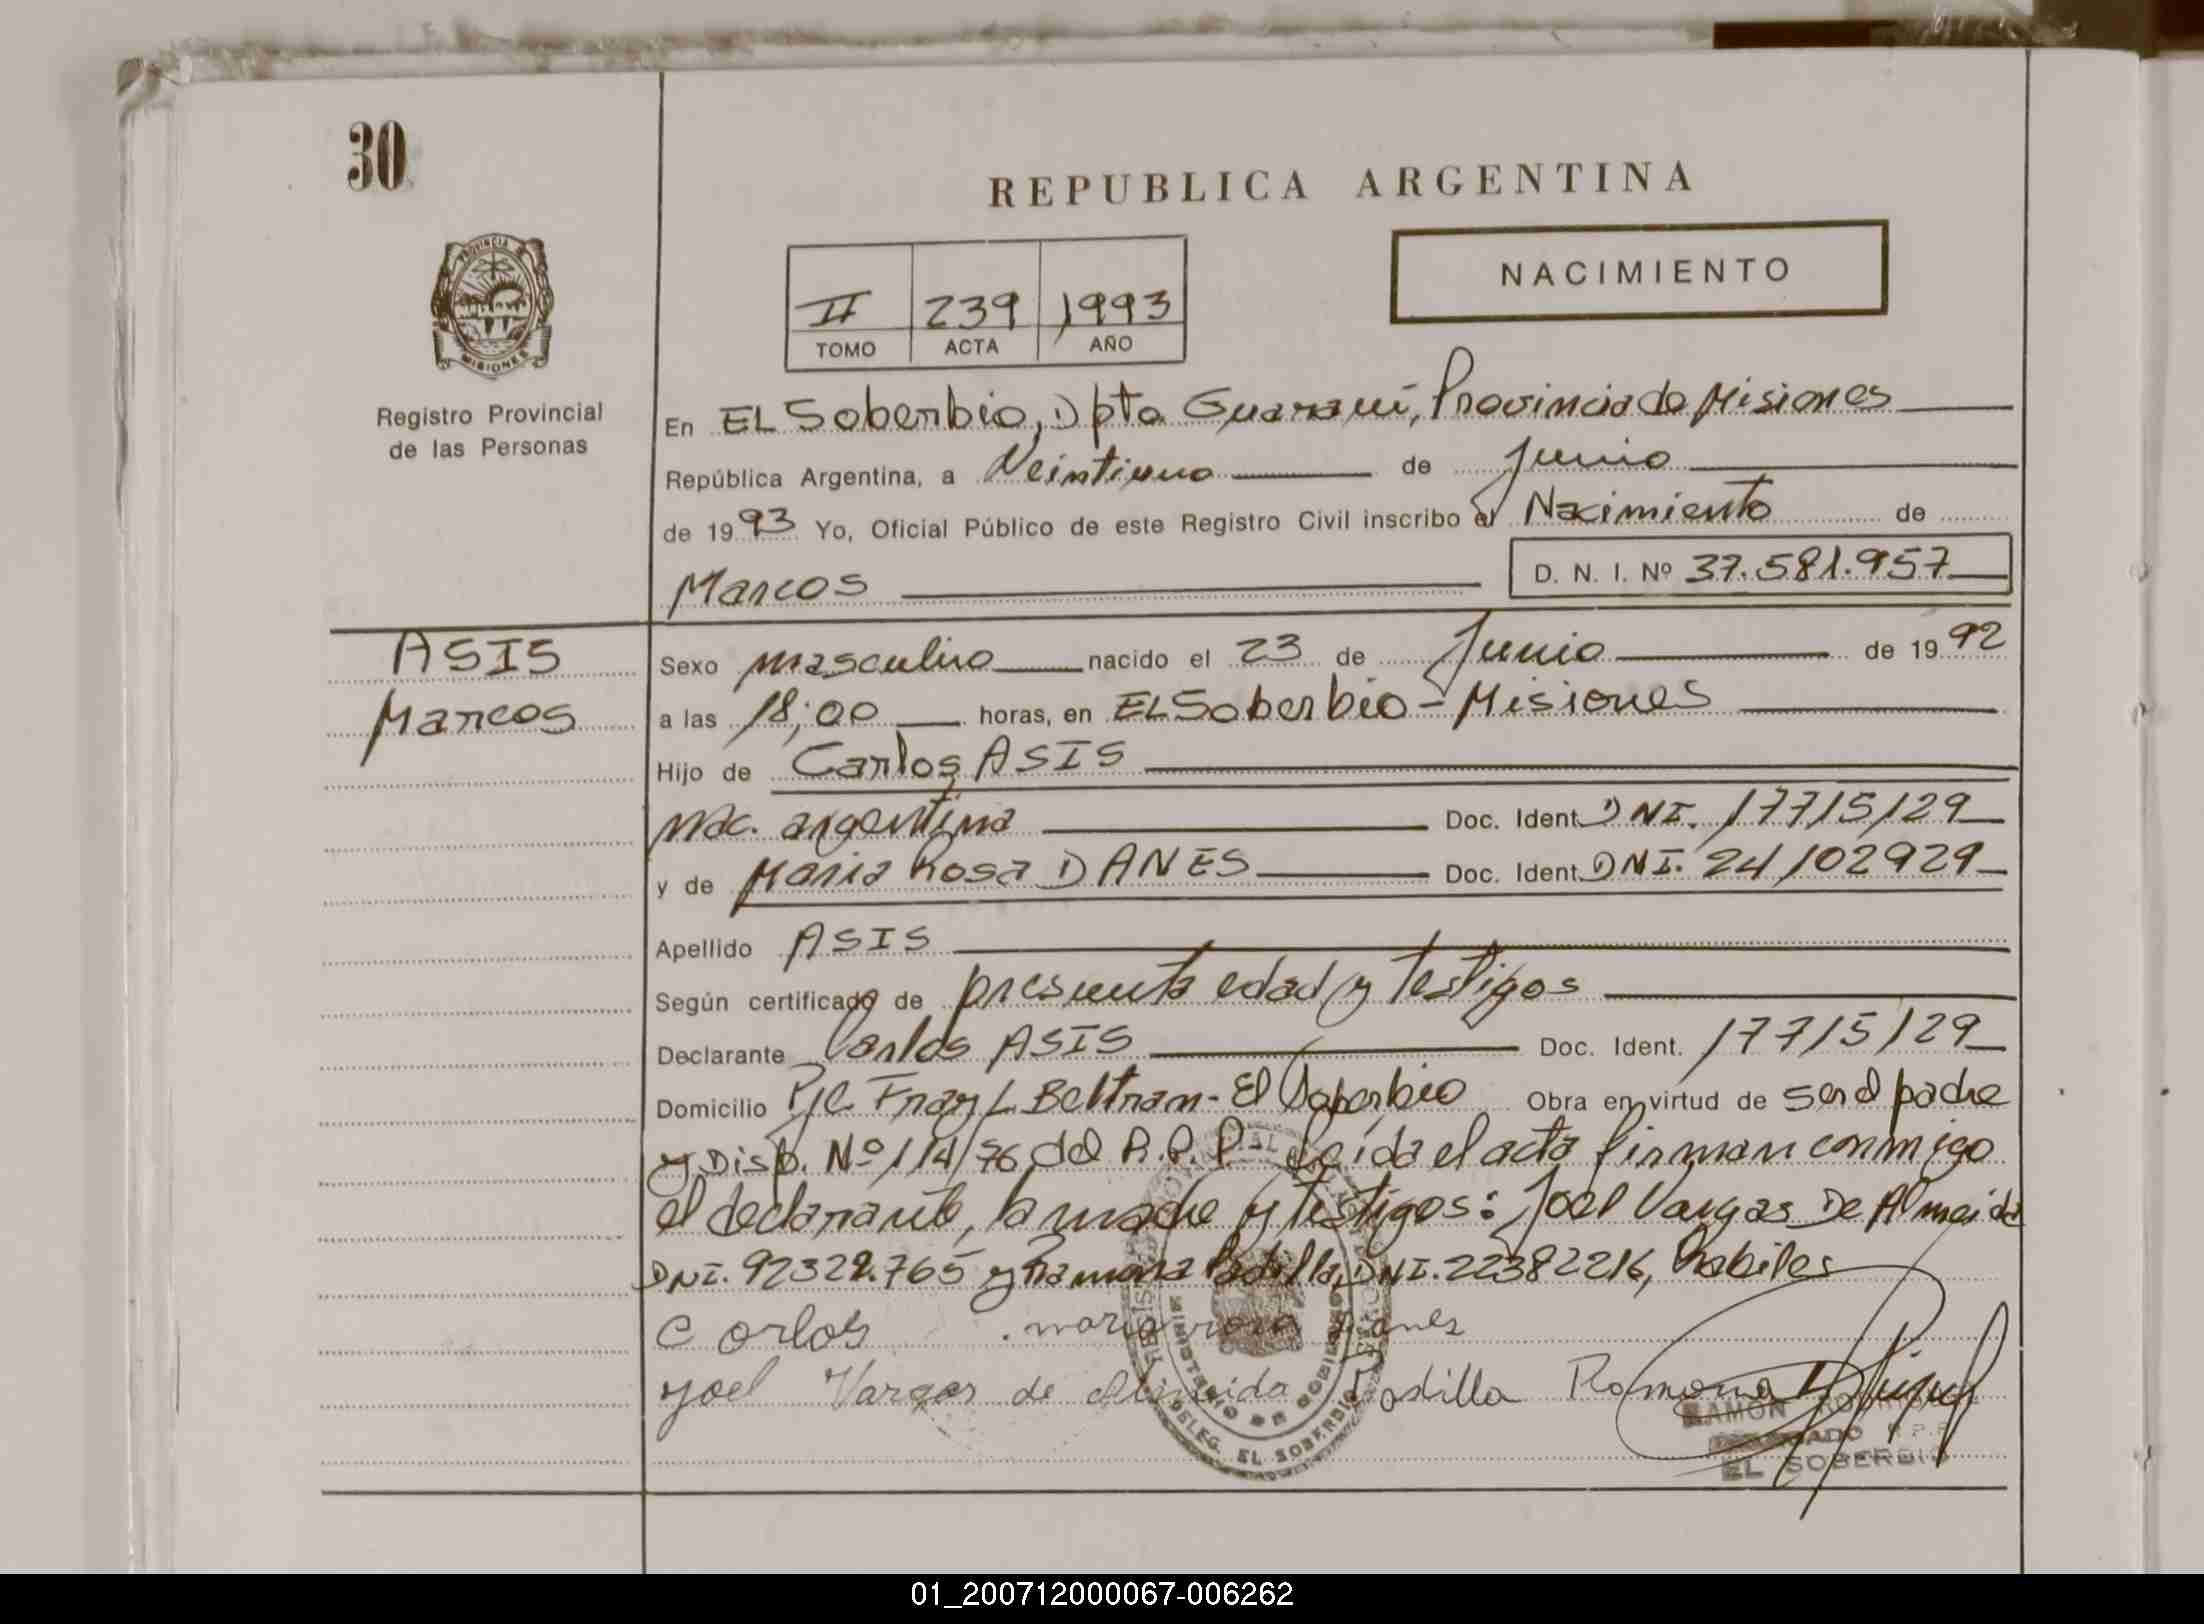 30
REPUBLICA ARGENTINA
PROVINCIA DE
MISIONES
Registro Provincial
de las Personas
NACIMIENTO
II 239 1993
TOMO ACTA AÑO
En EL Soberbio, Dpto Guaraní, Provincia de Misiones
República Argentina, a Veintiuno de Junio
de 1993 Yo, Oficial Público de este Registro Civil inscribo el Nacimiento de
Marcos D. N. I. Nº 37.581.957
ASIS
Marcos
Sexo masculino nacido el 23 de Junio de 1992
a las 18;00 horas, en EL Soberbio - Misiones
Hijo de Carlos ASIS
nac. argentina Doc. Ident. DNI. 17715129
y de Maria Rosa DANES Doc. Ident. DNI. 24102929
Apellido ASIS
Según certificado de presunta edad y testigos
Declarante Carlos ASIS Doc. Ident. 17715129
Domicilio Pje Fray L. Beltran - El Soberbio Obra en virtud de ser el padre
y Disp. Nº 114/76 del R.P.P. Leída el acta firman conmigo
el declarante, la madre y testigos: Joel Vargas De Almeida
DNI. 92322.765 y Ramona Padilla, DNI. 22382216, habiles
Carlos maria rosa Danes
yoel Vargas de Almeida Padilla Ramona
MINISTERIO DE GOBIERNO
DELEG. EL SOBERBIO
RAMON
EL SOBERBIO
01_200712000067-006262